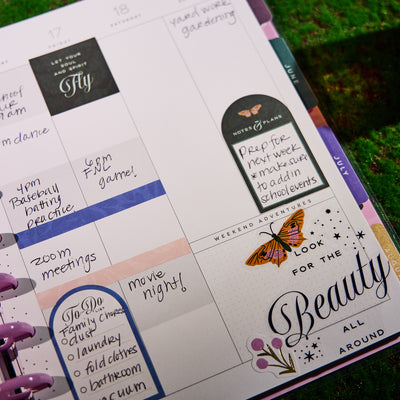 17
FRIDAY
18
SATURDAY
yard work
gardening
LET YOUR
SOUL
AND SPIRIT
Fly
am
dance
4pm
Baseball
batting
practice
6pm
FNL
game!
zoom
meetings
movie
night!
To Do
Family Chores
dust
laundry
fold clothes
bathroom
vacuum
NOTES & PLANS
Prep for
next week
* make sure
to add in
school events
WEEKEND ADVENTURES
LOOK
FOR THE
Beauty
ALL
AROUND
JUNE
JULY